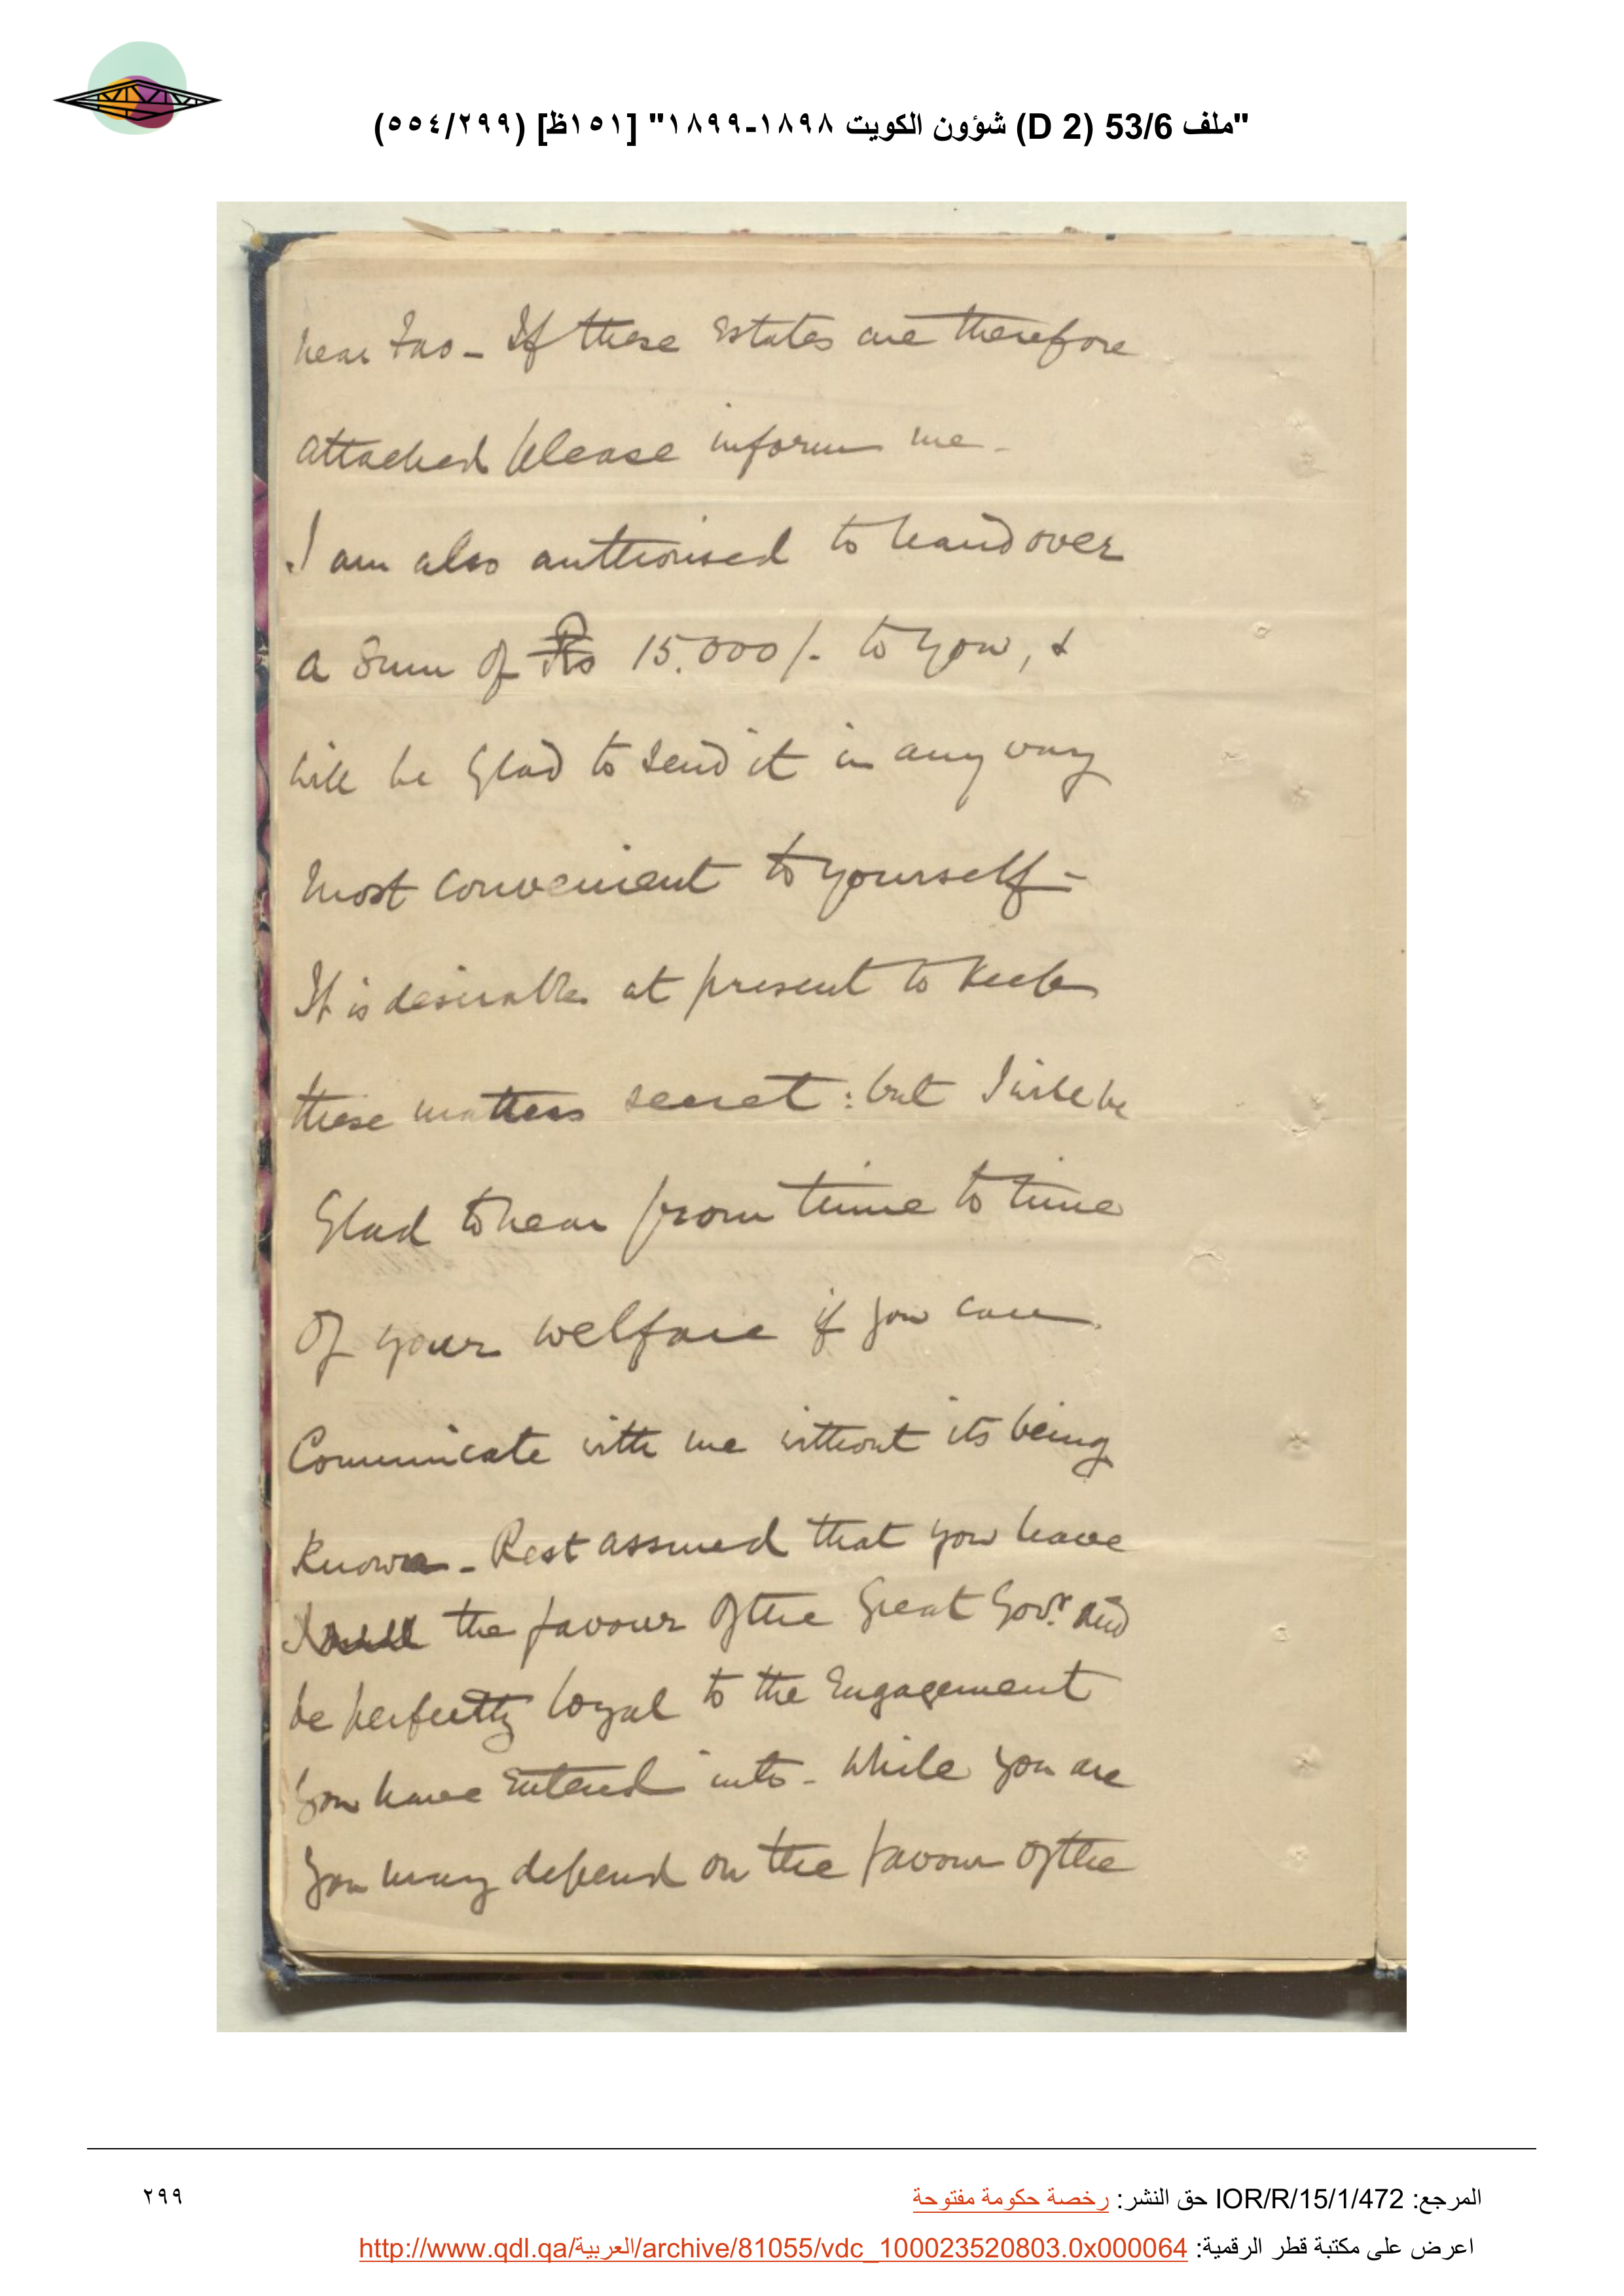 "ملف 53/6 (D 2) شؤون الكويت ١٨٩٨-١٨٩٩" [١٥١ظ] (٢٩٩/٥٥٤)
near Fao - If these Estates are therefore
attached please inform me -
I am also authorised to hand over
a Sum of Rs 15,000/- to you, &
will be Glad to send it in any way
most convenient to yourself -
It is desirable at present to keep
these matters secret : but I will be
Glad to hear from time to time
Of your welfare if you can
Communicate with me without its being
Known - Rest assured that you have
the favour of the Great Govr. and
be perfectly loyal to the Engagement
you have entered into - While you are
you may depend on the favour of the
المرجع: IOR/R/15/1/472 حق النشر: رخصة حكومة مفتوحة
اعرض على مكتبة قطر الرقمية: http://www.qdl.qa/العربية/archive/81055/vdc_100023520803.0x000064
٢٩٩